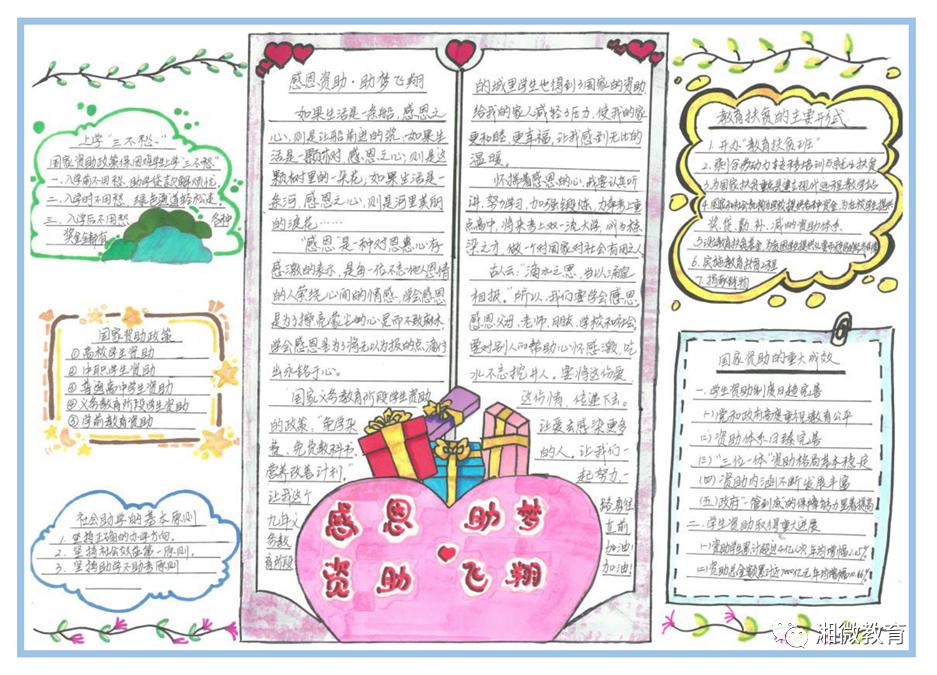 上学“三不愁”
国家资助政策保困难学生上学“三不愁”
一、入学前不用愁
二、入学时不用愁 绿色通道
三、入学后不用愁 各种
奖金全都有
国家资助政策
①高校学生资助
②中职学生资助
③普通高中学生资助
④义务教育阶段学生资助
⑤学前教育资助
社会助学的基本原则
1. 坚持正确的办学方向。
2. 坚持社会效益第一原则。
3. 坚持助学不助考原则
感恩资助·助梦飞翔
如果生活是一条船，感恩之
心，则是让船前进的桨，如果生
活是一颗树，感恩之心，则是这
颗树里的一朵花；如果生活是一
条河，感恩之心，则是河里美丽
的浪花……
“感恩”是一种对恩惠心存
感激的表示，是每一位不忘他人恩情
的人萦绕心间的情感。学会感恩
是为了擦亮蒙尘的心灵而不致麻木
学会感恩是为了将无以为报的点滴付
出永铭于心。
国家义务教育阶段学生资助
的政策，“免学杂
费、免费教科书
营养改善计划”
让我这个
九年义
务教
育阶段
的城里学生也得到了国家的资助
给我的家人减轻了压力，使我的家
更和睦，更幸福，让我感到无比的
温暖。
怀揣着感恩的心，我要认真听
讲，努力学习，加强锻炼，力争考上重
点高中，将来考上双一流大学，成为栋
梁之才，做一个对国家对社会有用之人
古人云：“滴水之恩，当以涌泉
相报。”所以，我们要学会感恩
感恩父母、老师、朋友、学校和社会，
要对别人的帮助心怀感激，吃
水不忘挖井人。要将这份爱
这份情，传递下去。
让爱去感染更多
的人，让我们一
起努力，
踏
直前
加油！
加油！
感恩 助梦
资助 飞翔
教育扶贫的主要形式
1. 开办“教育扶贫班”
2. 积分劳动力转移培训与就业扶贫
3. 为国家扶贫重点县建立现代远程教学站
4.
奖、贷、勤、补、减的资助体系
5.
6. 实施教育扶贫工程
7. 捐献财物
国家资助的重大成效
一、学生资助制度日趋完善
(一)党和政府高度重视教育公平
(二)资助体系日臻完善
(三)“三位一体”资助格局基本稳定
(四)资助内涵不断发展丰富
(五)政府
二、学生资助取得重大进展
湘微教育